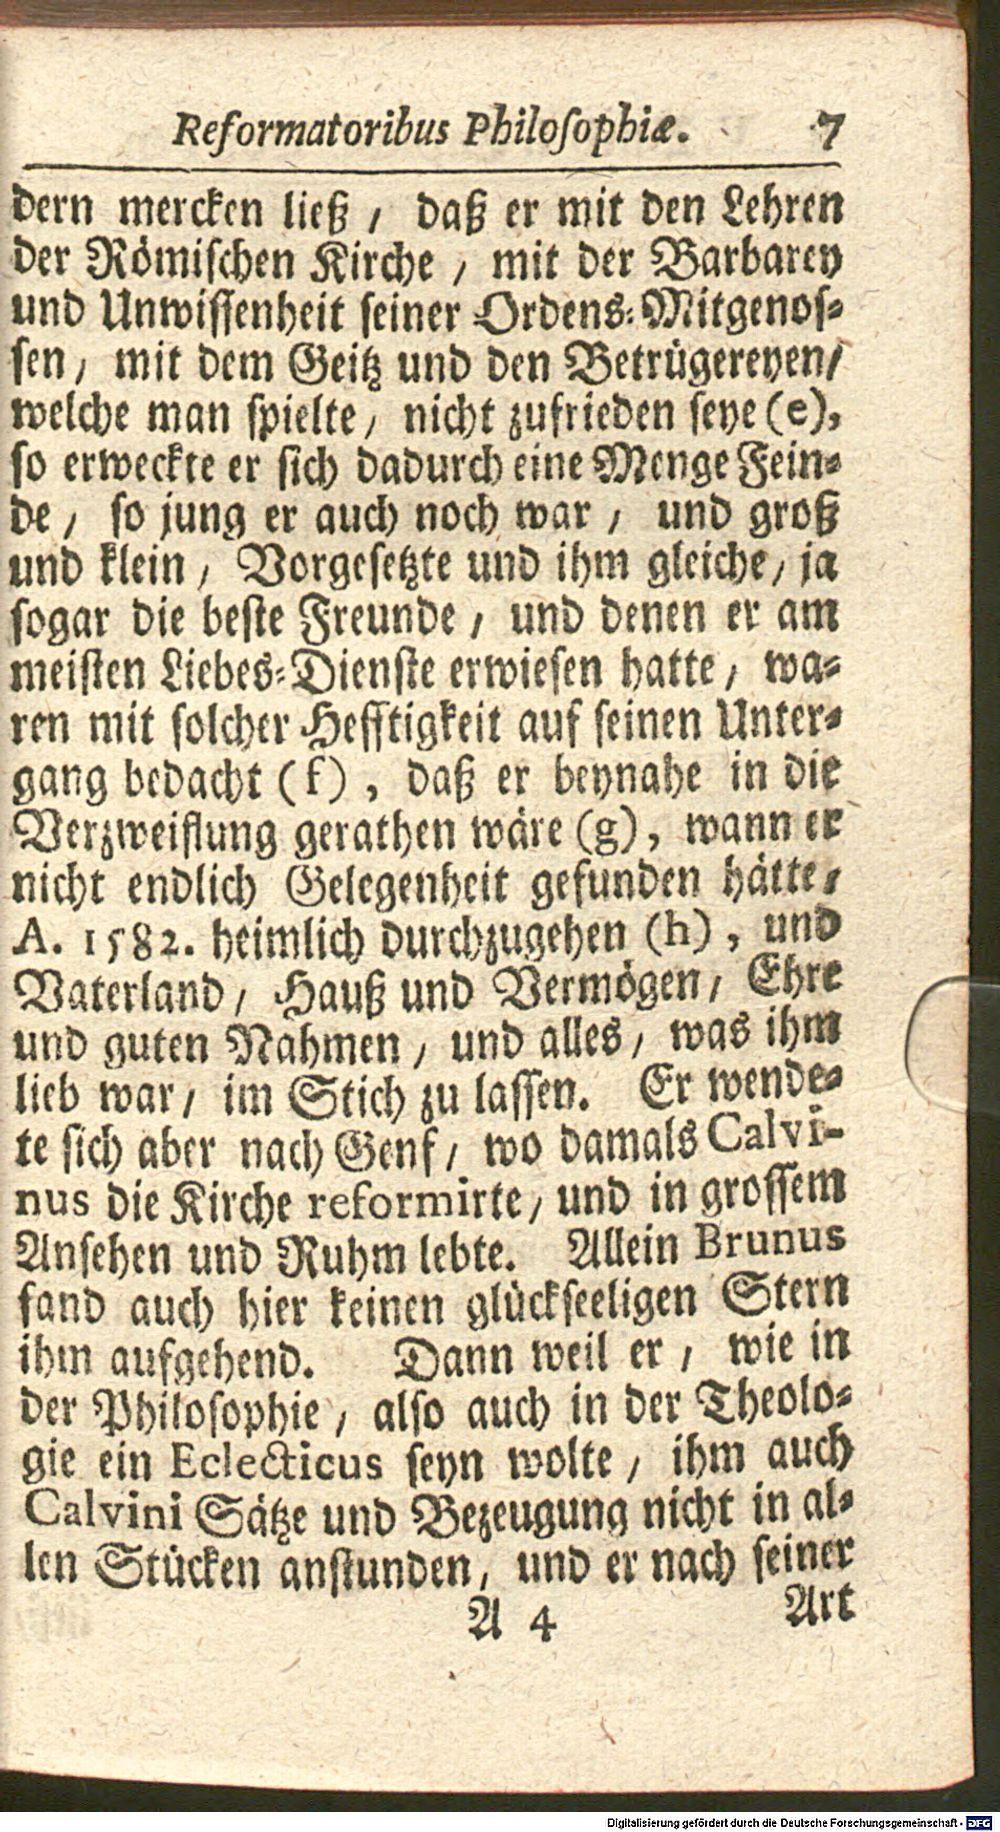 Reformatoribus Philoſophiæ. 7
dern mercken ließ / daß er mit den Lehren
der Römiſchen Kirche / mit der Barbarey
und Unwiſſenheit ſeiner Ordens-Mitgenoſ-
ſen / mit dem Geitz und den Betrügereyen /
welche man ſpielte / nicht zufrieden ſeye (e),
ſo erweckte er ſich dadurch eine Menge Fein-
de / ſo jung er auch noch war / und groß
und klein / Vorgeſetzte und ihm gleiche / ja
ſogar die beſte Freunde / und denen er am
meiſten Liebes-Dienſte erwieſen hatte / wa-
ren mit ſolcher Hefftigkeit auf ſeinen Unter-
gang bedacht (f), daß er beynahe in die
Verzweiflung gerathen wäre (g), wann er
nicht endlich Gelegenheit gefunden hätte /
A. 1582. heimlich durchzugehen (h), und
Vaterland / Hauß und Vermögen / Ehre
und guten Nahmen / und alles / was ihm
lieb war / im Stich zu laſſen. Er wende-
te ſich aber nach Genf / wo damals Calvi-
nus die Kirche reformirte / und in groſſem
Anſehen und Ruhm lebte. Allein Brunus
fand auch hier keinen glückſeeligen Stern
ihm aufgehend. Dann weil er / wie in
der Philoſophie / alſo auch in der Theolo-
gie ein Eclecticus ſeyn wolte / ihm auch
Calvini Sätze und Bezeugung nicht in al-
len Stücken anſtunden / und er nach ſeiner
A 4 Art
Digitalisierung gefördert durch die Deutsche Forschungsgemeinschaft - DFG